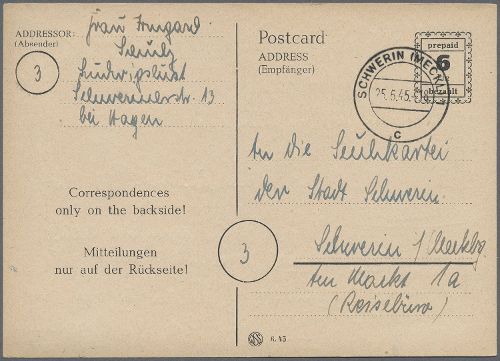 ADDRESSOR:
(Absender)
Frau Irmgard
Schulz
Ludwigslust
Schwerinerstr. 13
bei Hagen
3
Correspondences
only on the backside!
Mitteilungen
nur auf der Rückseite!
Postcard
ADDRESS
(Empfänger)
prepaid
6
bezahlt
SCHWERIN (MECKL)
25.5.45.
c
An die Suchkartei
der Stadt Schwerin.
3
Schwerin /Mecklbg.
Am Markt 1a
(Reisebüro)
6. 45